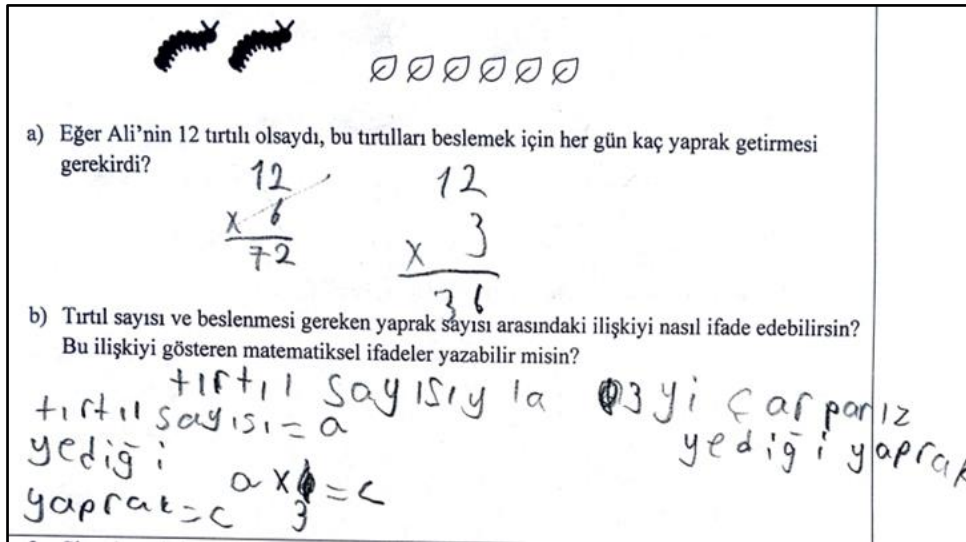 a) Eğer Ali'nin 12 tırtılı olsaydı, bu tırtılları beslemek için her gün kaç yaprak getirmesi
gerekirdi?
12
x 6
72
12
x 3
36
b) Tırtıl sayısı ve beslenmesi gereken yaprak sayısı arasındaki ilişkiyi nasıl ifade edebilirsin?
Bu ilişkiyi gösteren matematiksel ifadeler yazabilir misin?
tırtıl sayısıyla 3yi çarparız
yediği yaprak
tırtıl sayısı = a
yediği
yaprak = c
a x 3 = c